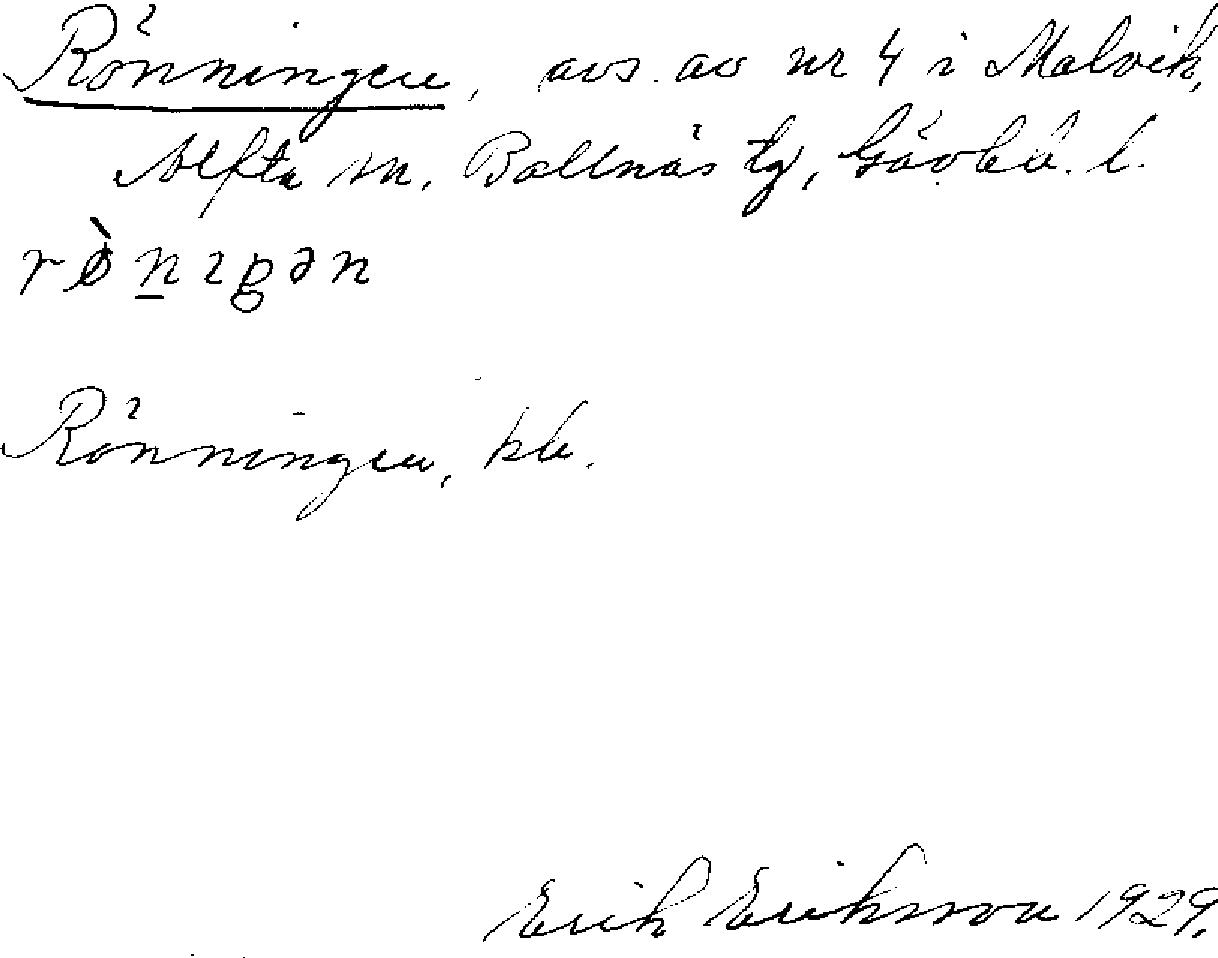 Rönningen, avs. av nr 4 i Malvik,
Alfta sn. Bollnäs tg, Gävleb. l.
rø̀n̲ıgən
Rönningen, kb.
Erik Eriksson 1929.